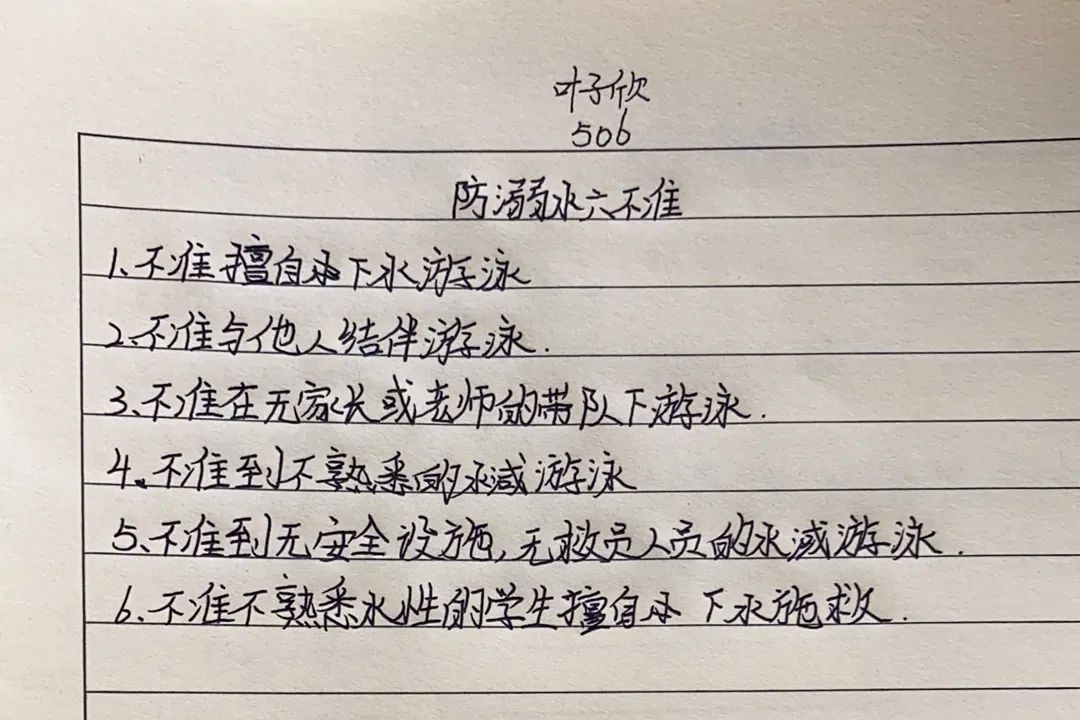 叶子欣
506
防溺水六不准
1、不准擅自下水游泳
2、不准与他人结伴游泳.
3、不准在无家长或老师的带队下游泳.
4、不准到不熟悉的水减游泳
5、不准到无安全设施,无救员人员的水减游泳.
6、不准不熟悉水性的学生擅自下水施救.